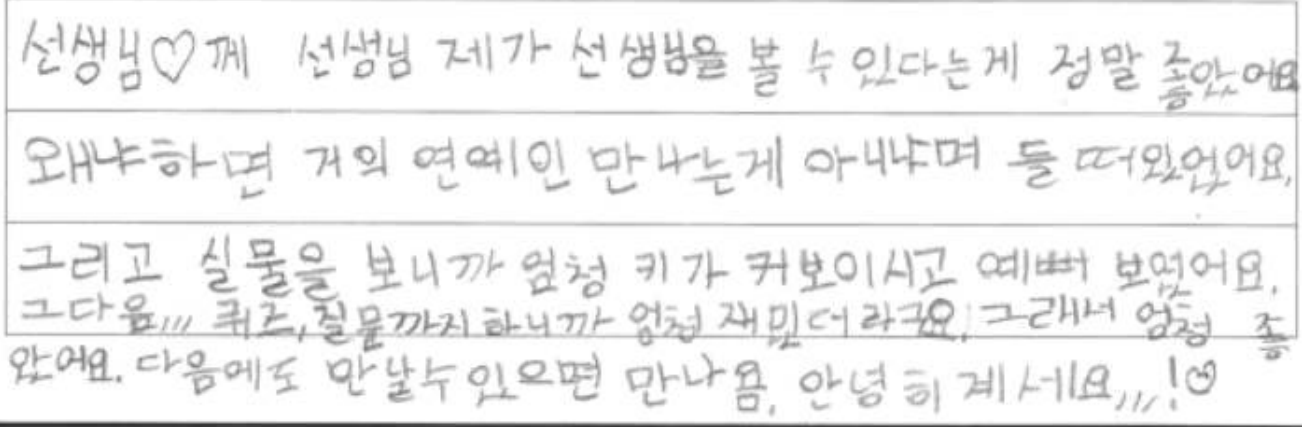 선생님♡께 선생님 제가 선생님을 볼 수 있다는게 정말 좋았어요
왜냐하면 거의 연예인 만나는게 아니냐며 들 떠있었어요.
그리고 실물을 보니까 엄청 키가 커보이시고 예뻐 보였어요.
그다음,,, 퀴즈, 질문까지 하니까 엄청 재밌더라구요. 그래서 엄청 좋
았어요. 다음에도 만날수있으면 만나욤. 안녕히 계세요,,,!♡